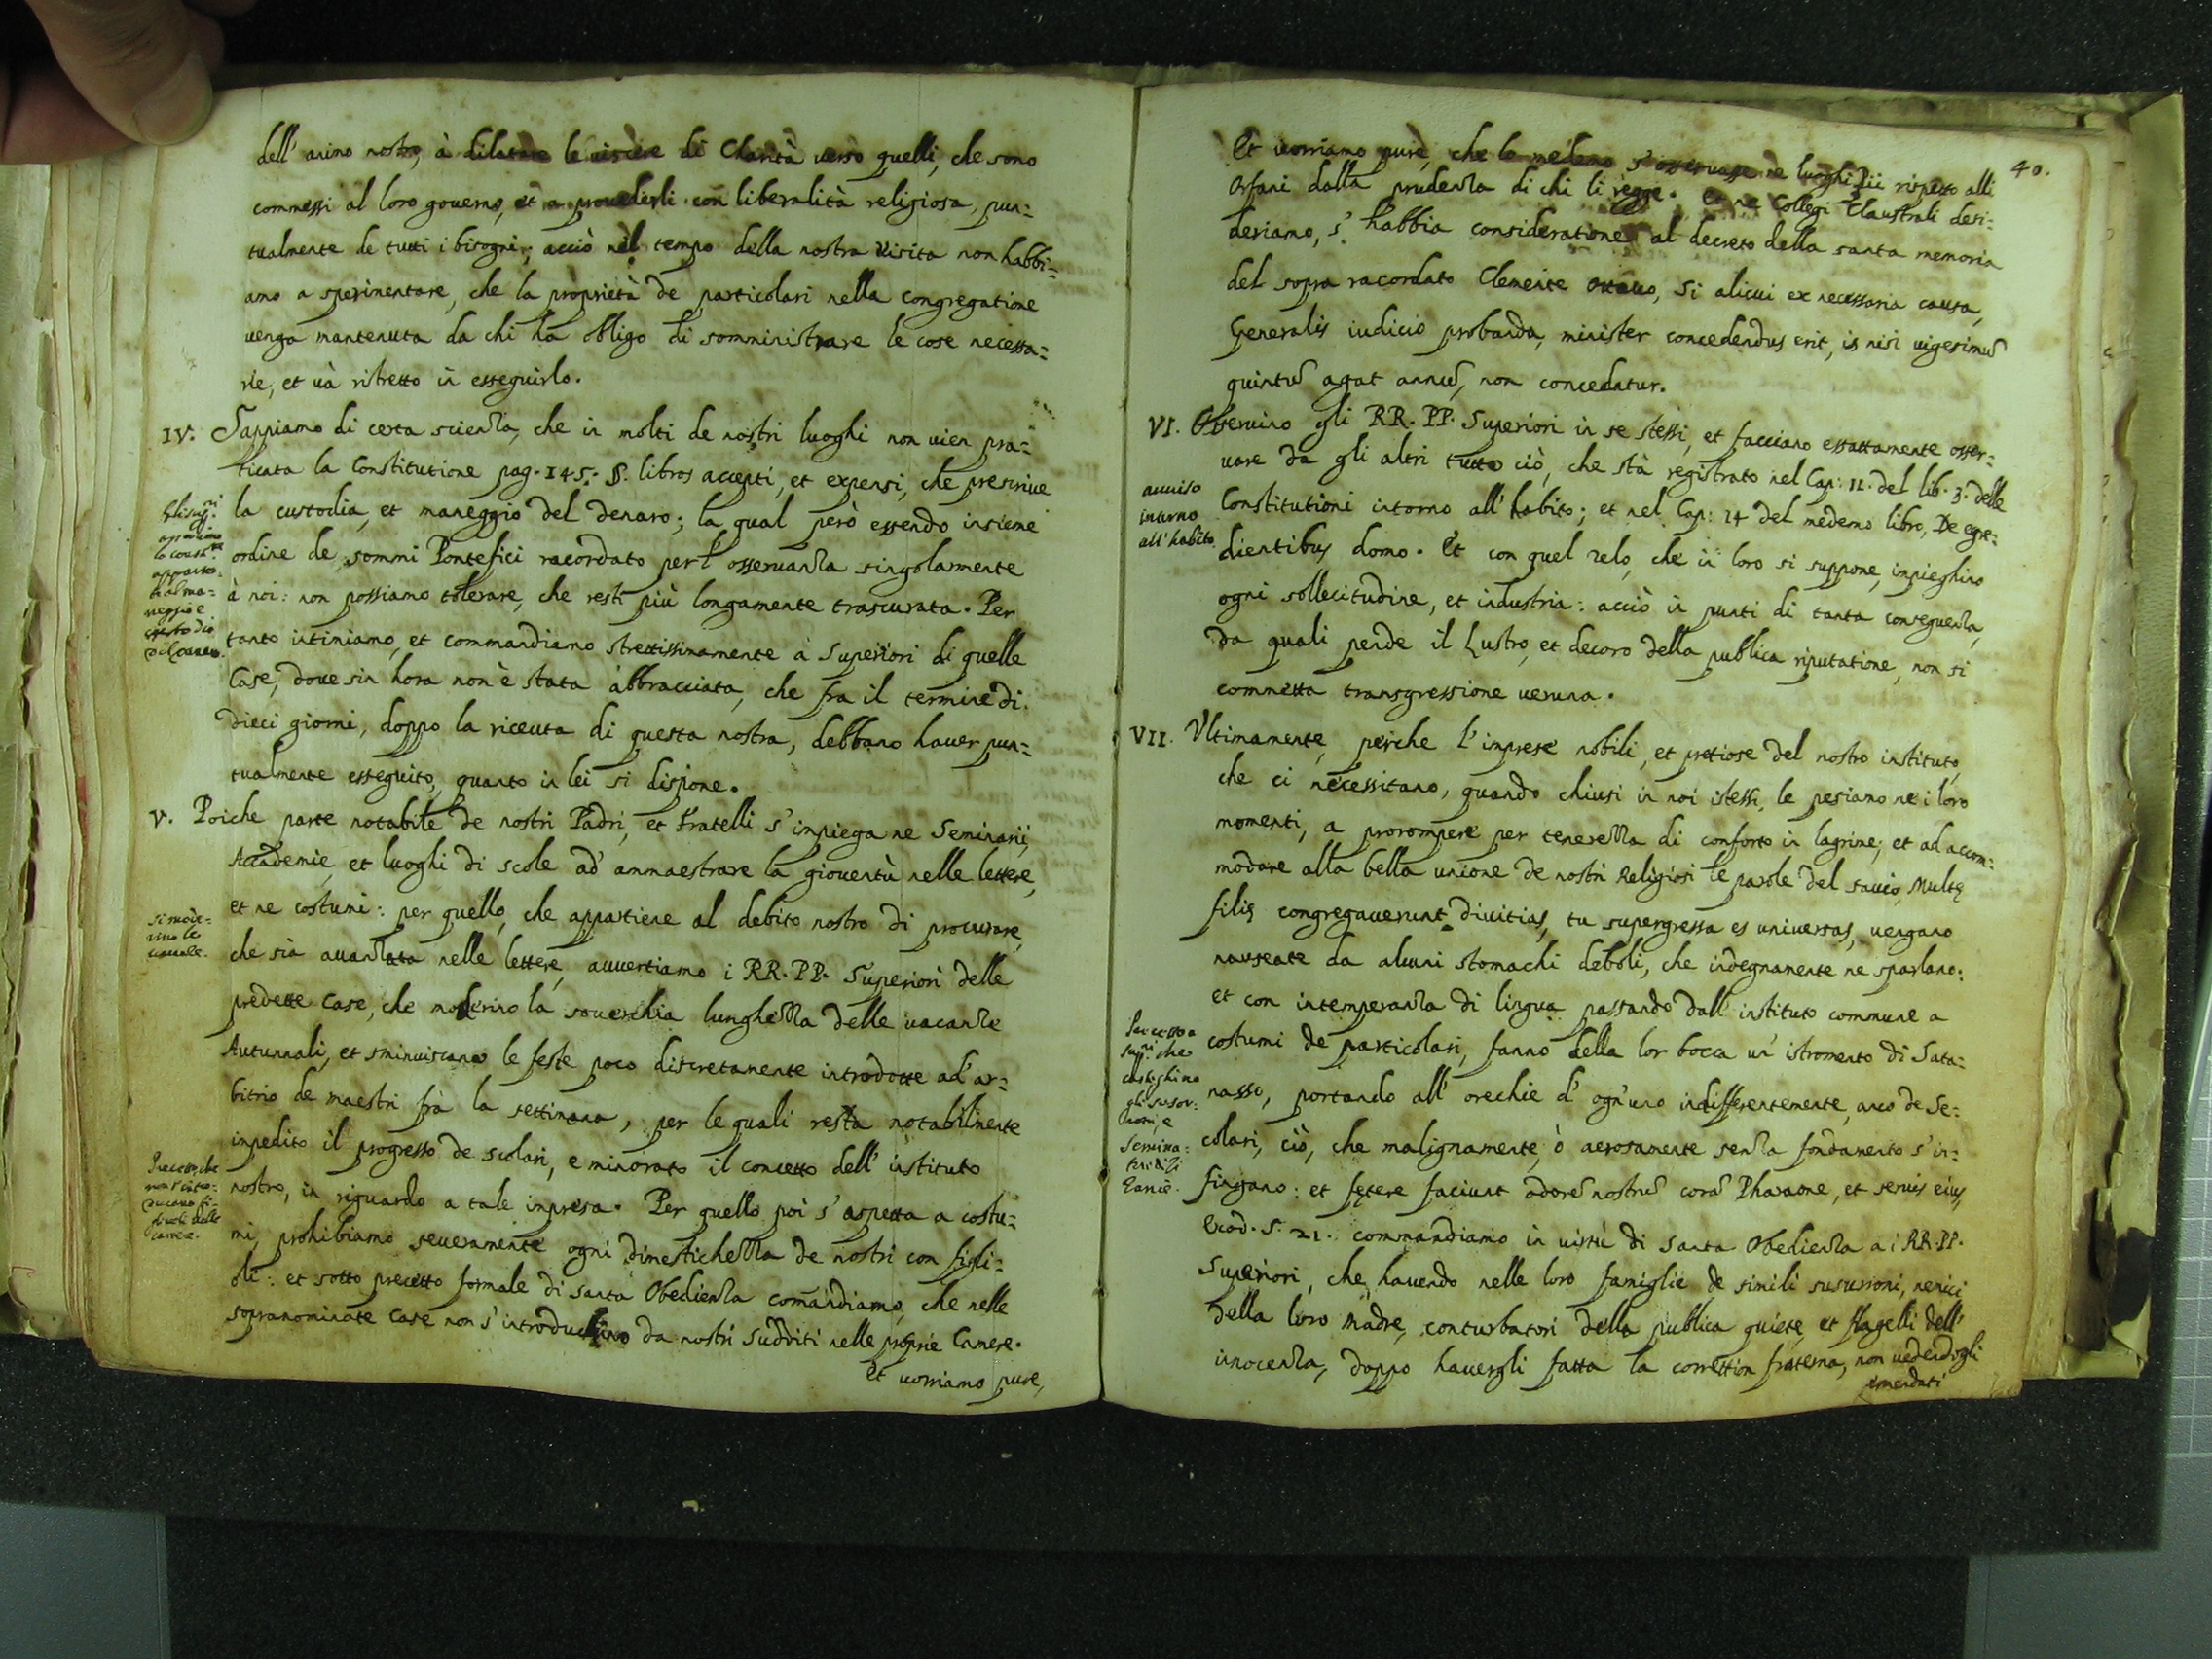 dell' animo nostro, à dilatare le viscere di Charità verso quelli, che sono
commessi al loro governo, et a provederli con liberalità religiosa, pun=
tualmente de tutti i bisogni; acciò nel tempo della nostra visita non habbi=
amo a sperimentare, che la proprietà de particolari nella congregatione
venga mantenuta da chi hà obligo di somministrare le cose necessa=
rie, et và ristretto in esseguirlo.
IV. Sappiamo di certa scienza, che in molti de nostri luoghi non vien pra=
ticata la Constitutione pag. 145. §. libros accepti, et expensi, che prescrive
la custodia, et maneggio del denaro; la qual però essendo insieme
ordine de sommi Pontefici racordato per l' osservanza singolarmente
à noi: non possiamo tolerare, che resti più longamente trascurata. Per
tanto intimiamo, et commandiamo strettissimamente à Superiori di quelle
Case, dove sin hora non è stata abbracciata, che fra il termine di
dieci giorni, doppo la riceuta di questa nostra, debbano haver pun=
tualmente esseguito, quanto in lei si dispone.
V. Poiche parte notabile de nostri Padri, et Fratelli s' impiega ne Seminarij,
Accademie, et luoghi di scole ad' ammaestrare la gioventù nelle lettere,
et ne costumi: per quello, che appartiene al debito nostro di procurare,
simode=
rino le
che sia avanzata nelle lettere, avvertiamo i RR. PP. Superiori delle
predette Case, che moderino la soverchia lunghezza delle vacanze
Autunnali, et sminuiscano le feste poco discretamente introdotte ad' ar=
bitrio de maestri frà la settimana, per le quali resta notabilmente
impedito il progresso de scolari, e minorato il concetto dell' instituto
nostro, in riguardo a tale impresa. Per quello poi s' aspetta a costu=
mi, prohibiamo severamente ogni dimestichezza de nostri con figli=
oli: et sotto precetto formale di santa Obedienza comandiamo, che nelle
sopranominate Case non s' introduchino da nostri sudditi nelle proprie Camere.
Et vorriamo pure,
40.
Et vorriamo pure, che lo medemo s' osservasse ne luoghi pii rispetto alli
Orfani dalla prudenza di chi li regge. Et ne Collegi Claustrali desi=
deriamo, s' habbia consideratione al decreto della santa memoria
del sopra racordato Clemente Ottavo, Si alicui ex necessaria causa,
Generalis iudicio probanda, minister concedendus erit, is nisi vigesimũ
quintũ agat annũ, non concedatur.
VI. Osservino gli RR. PP. Superiori in se stessi, et facciano essattamente osser=
vare da gli altri tutto ciò, che stà registrato nel Cap: 11. del lib. 3. delle
avviso
intorno
all' habito
Constitutioni intorno all' habito; et nel Cap: 14 del medemo libro, De egre=
dientibus domo. Et con quel zelo, che in loro si suppone, impieghino
ogni sollecitudine, et industria: acciò in punti di tanta conseguenza,
da quali pende il Lustro, et decoro della publica riputatione, non si
commetta transgressione veruna.
VII. Ultimamente, perche l' imprese nobili, et pretiose del nostro instituto,
che ci necessitano, quando chiusi in noi istessi, le pesiamo ne i loro
momenti, a prorompere per tenerezza di conforto in lagrime; et ad accom=
modare alla bella unione de nostri Religiosi le parole del savio, Multę
filię congregaverunt divitias, tu supergressa es universas, vengano
nauseate da alcuni stomachi deboli, che indegnamente ne sparlano:
et con intemperanza di lingua passando dall' instituto commune a
costumi de particolari, fanno della lor bocca un' istromento di Sata=
nasso, portando all' orechie d' ogn' uno indifferentemente, anco de Se=
colari, ciò, che malignamente, ò aerosamente senza fondamento s' in=
fingano: et fętere faciunt odorẽ nostrũ corã Pharaone, et servis eius,
Exod. 5. 21. commandiamo in virtù di santa Obedienza a i RR. PP.
Superiori, che havendo nelle loro famiglie de simili susurroni, nemici
della loro madre, conturbatori della publica quiete, et flagelli dell'
innocenza, doppo havergli fatta la correttion fraterna, non vedendogli
emendati